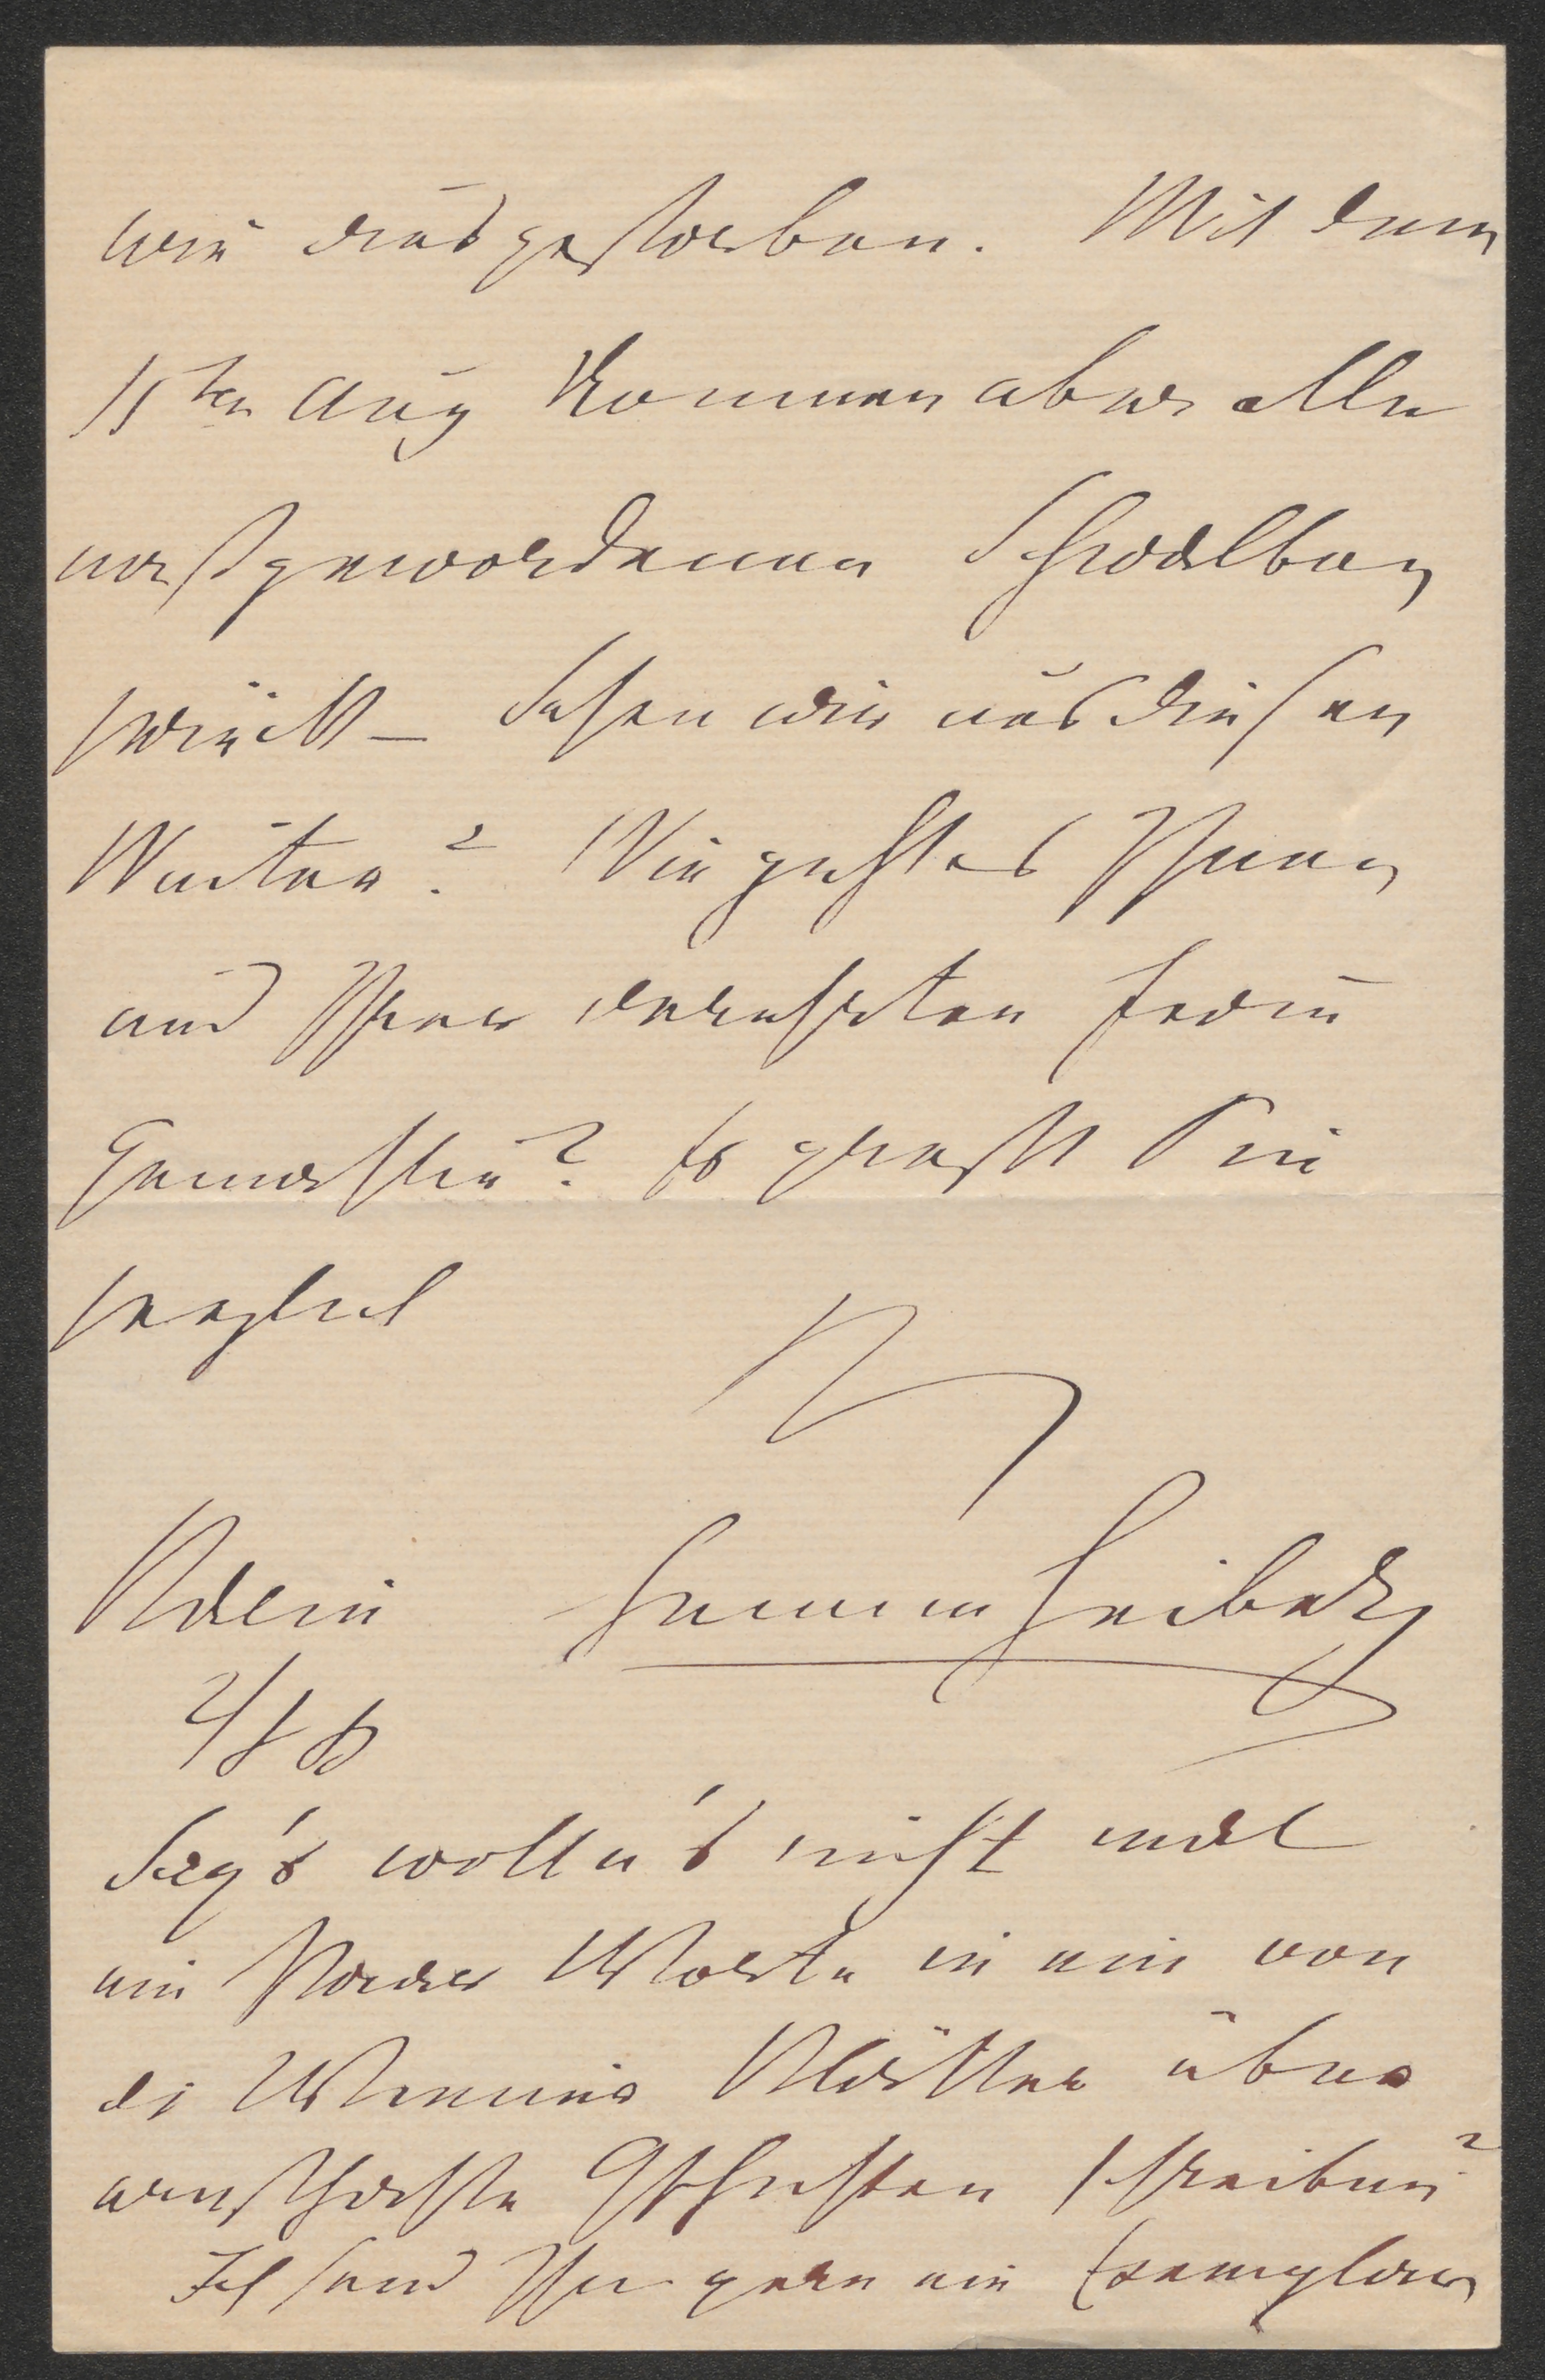 wie ausgestorben. Mit dem
15ten Aug kommen aber alle
naßgewordenen Schwalben
zurück – Sehen wir uns diesen
Winter? Wie geht es Ihnen
und Ihrer verehrten Frau
Gemahlin? Es grüßt Sie
herzlich
Ihr
Berlin Hanns Heibetz
2/8
Sag's wollen's nicht mal
ein Paar Worte in ein von
di Wiener Blätter über
ernsthafte Gschichten schreiben?
Ich send Ihn gern ein Exemplar